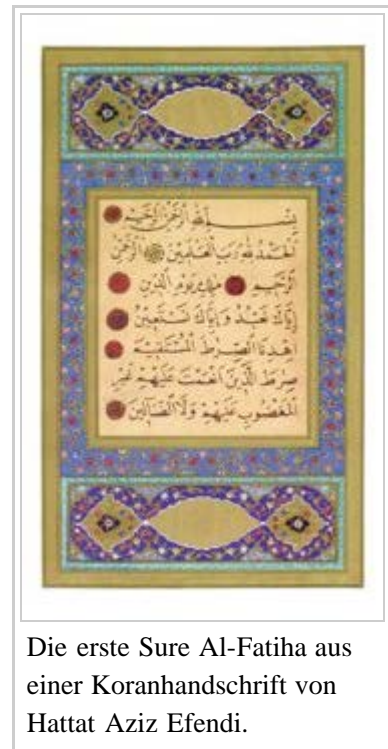 بِسْمِ اللهِ الرَّحْمٰنِ الرَّحِيمِ
اَلْحَمْدُ لِلّٰهِ رَبِّ الْعٰلَمِينَ الرَّحْمٰنِ
الرَّحِيمِ مٰلِكِ يَوْمِ الدِّينِ
اِيَّاكَ نَعْبُدُ وَاِيَّاكَ نَسْتَعِينُ
اِهْدِنَا الصِّرَاطَ الْمُسْتَقِيمَ
صِرَاطَ الَّذِينَ اَنْعَمْتَ عَلَيْهِمْ غَيْرِ
الْمَغْضُوبِ عَلَيْهِمْ وَلَا الضَّالِّينَ
Die erste Sure Al-Fatiha aus
einer Koranhandschrift von
Hattat Aziz Efendi.